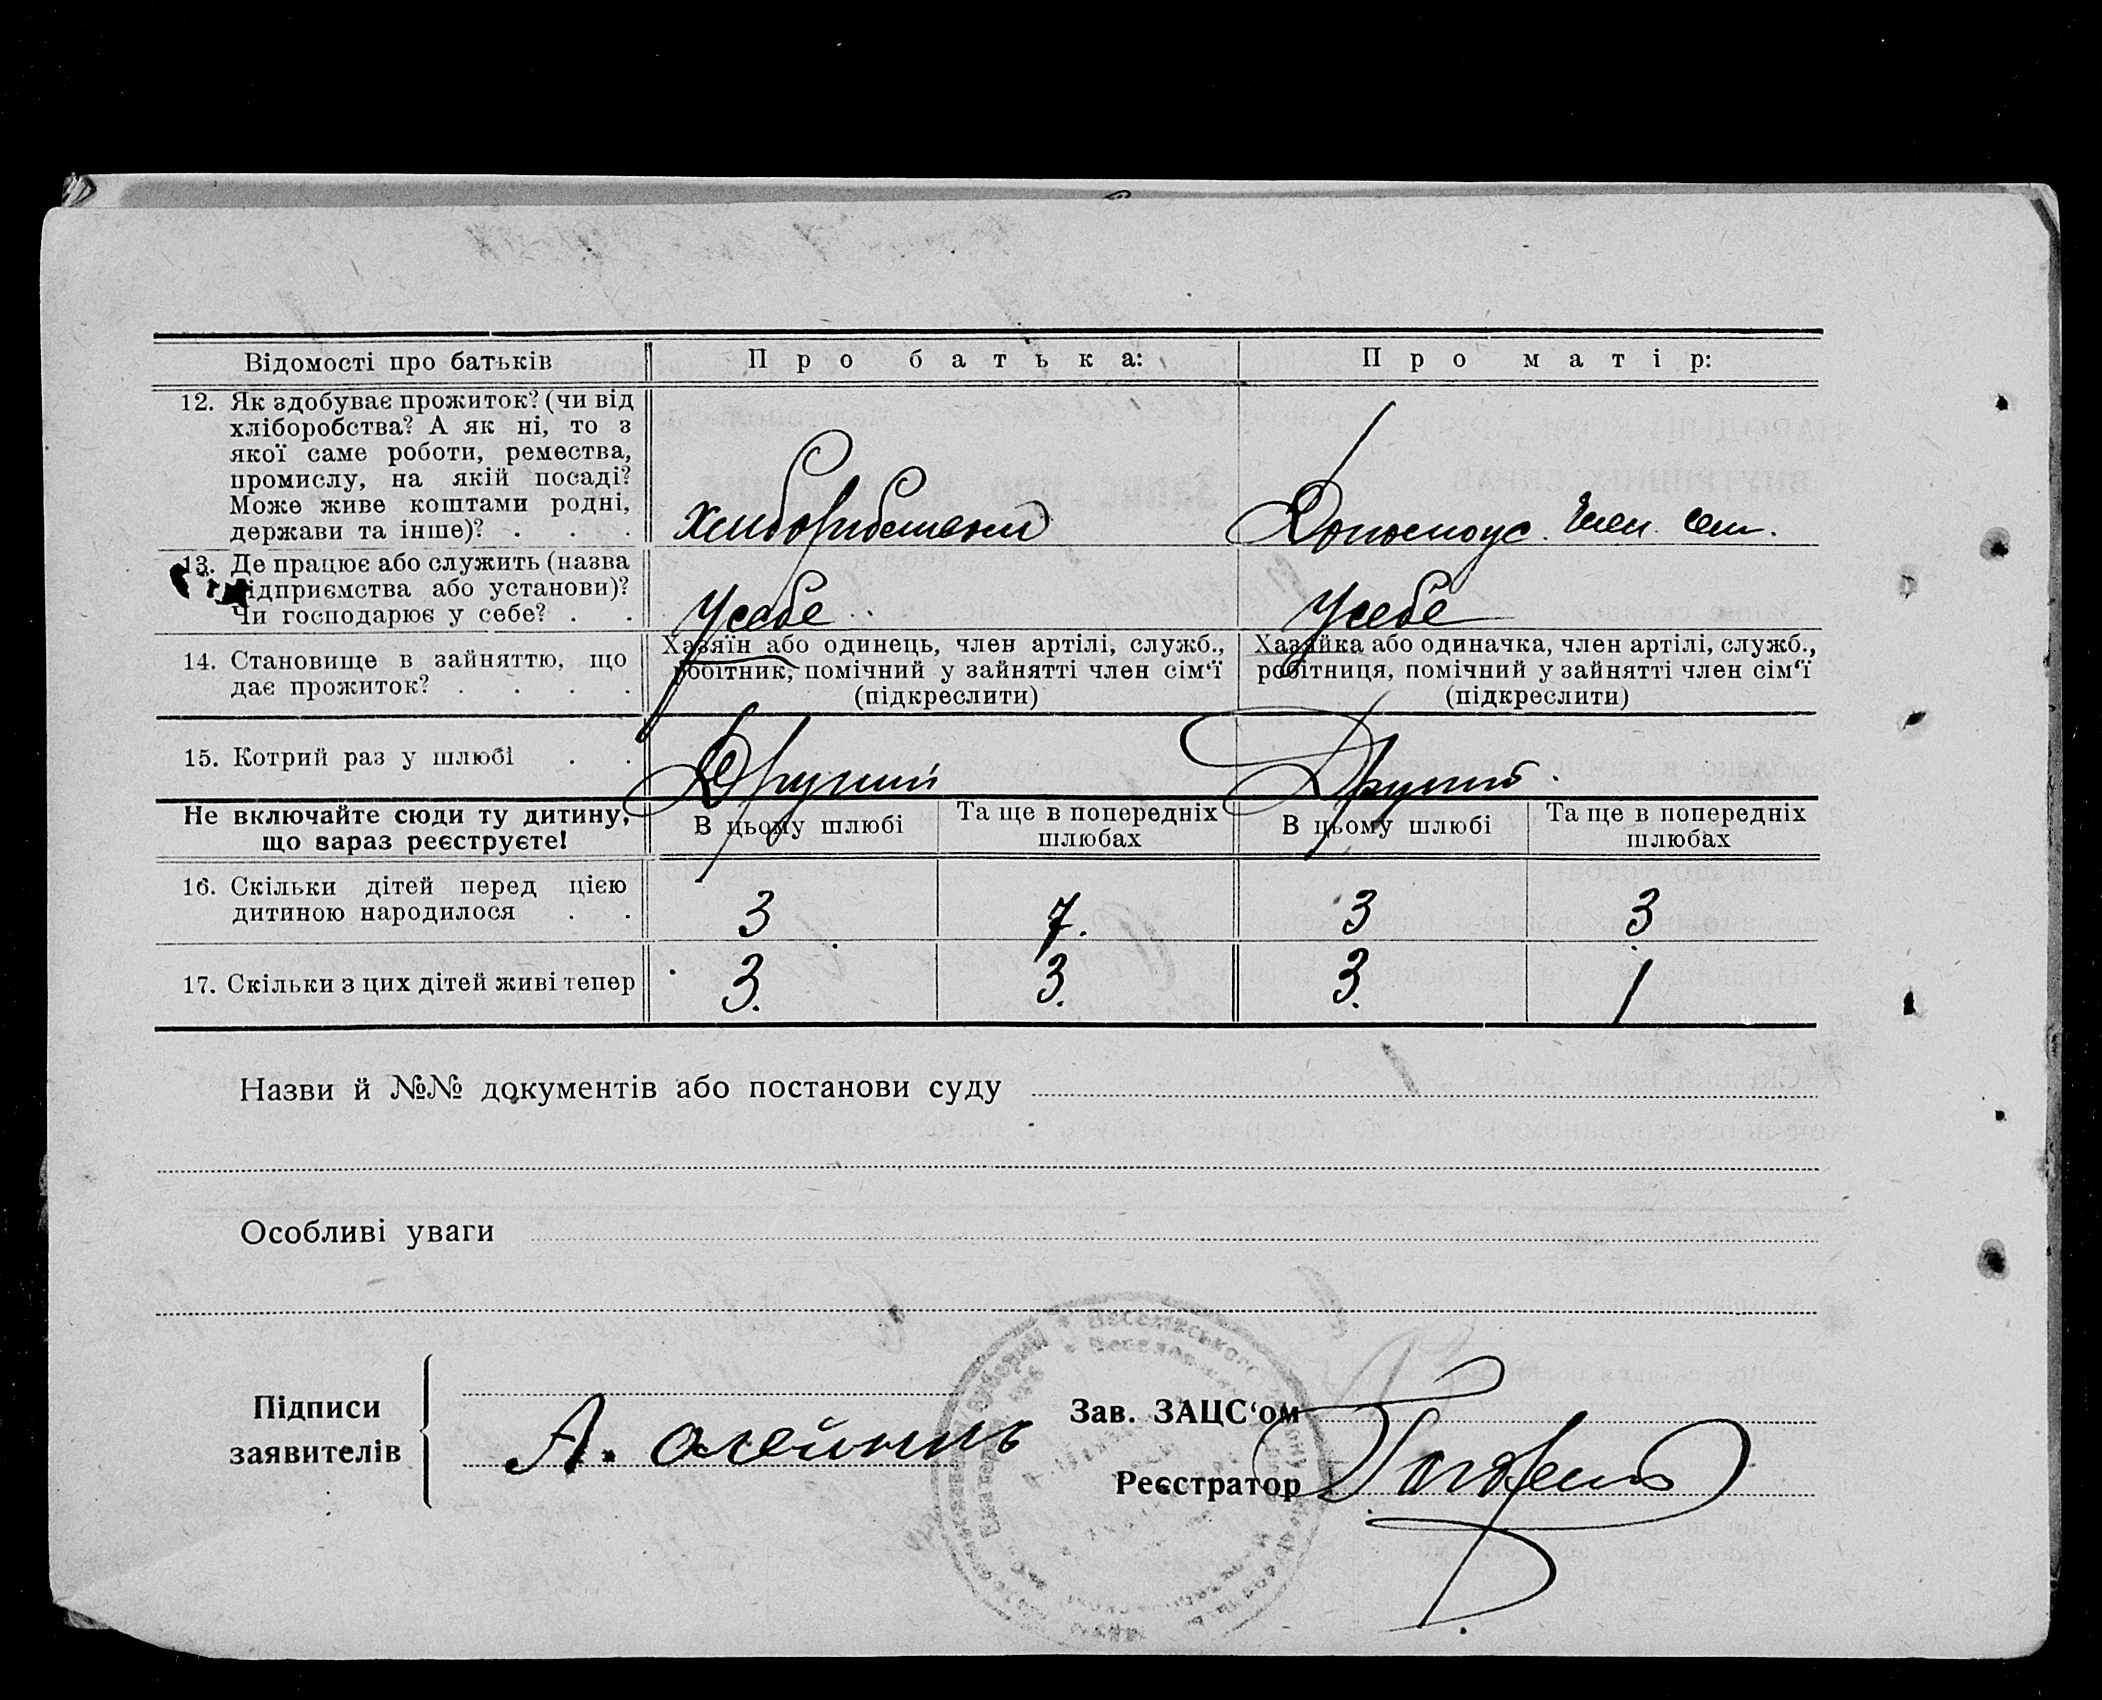 Відомості про батьків
Про батька:
Про матір:
12. Як здобуває прожиток? (чи від
хліборобства? А як ні, то з
якої саме роботи, ремества,
промислу, на якій посаді?
Може живе коштами родні,
держави та інше)? . . .
13. Де працює або служить (назва
ідприємства або установи)?
Чи господарює у себе? . .
Усебе
Усебе
14. Становище в зайняттю, що
дає прожиток? . . . .
Хазяїн або одинець, член артілі, служб.,
робітник, помічний у зайнятті член сім'ї
(підкреслити)
Хазяйка або одиначка, член артілі, служб.,
робітниця, помічний у зайнятті член сім'ї
(підкреслити)
15. Котрий раз у шлюбі . .
Другий
Другий
Не включайте сюди ту дитину,
що вараз реєструєте!
В цьому шлюбі
Та ще в попередніх
шлюбах
В цьому шлюбі
Та ще в попередніх
шлюбах
16. Скільки дітей перед цією
дитиною народилося . .
3 7. 3 3
17. Скільки з цих дітей живі тепер
3. 3. 3. 1
Назви й №№ документів або постанови суду
Особливі уваги
Підписи
заявителів
А. Олейникъ
Зав. ЗАЦС'ом
Реєстратор